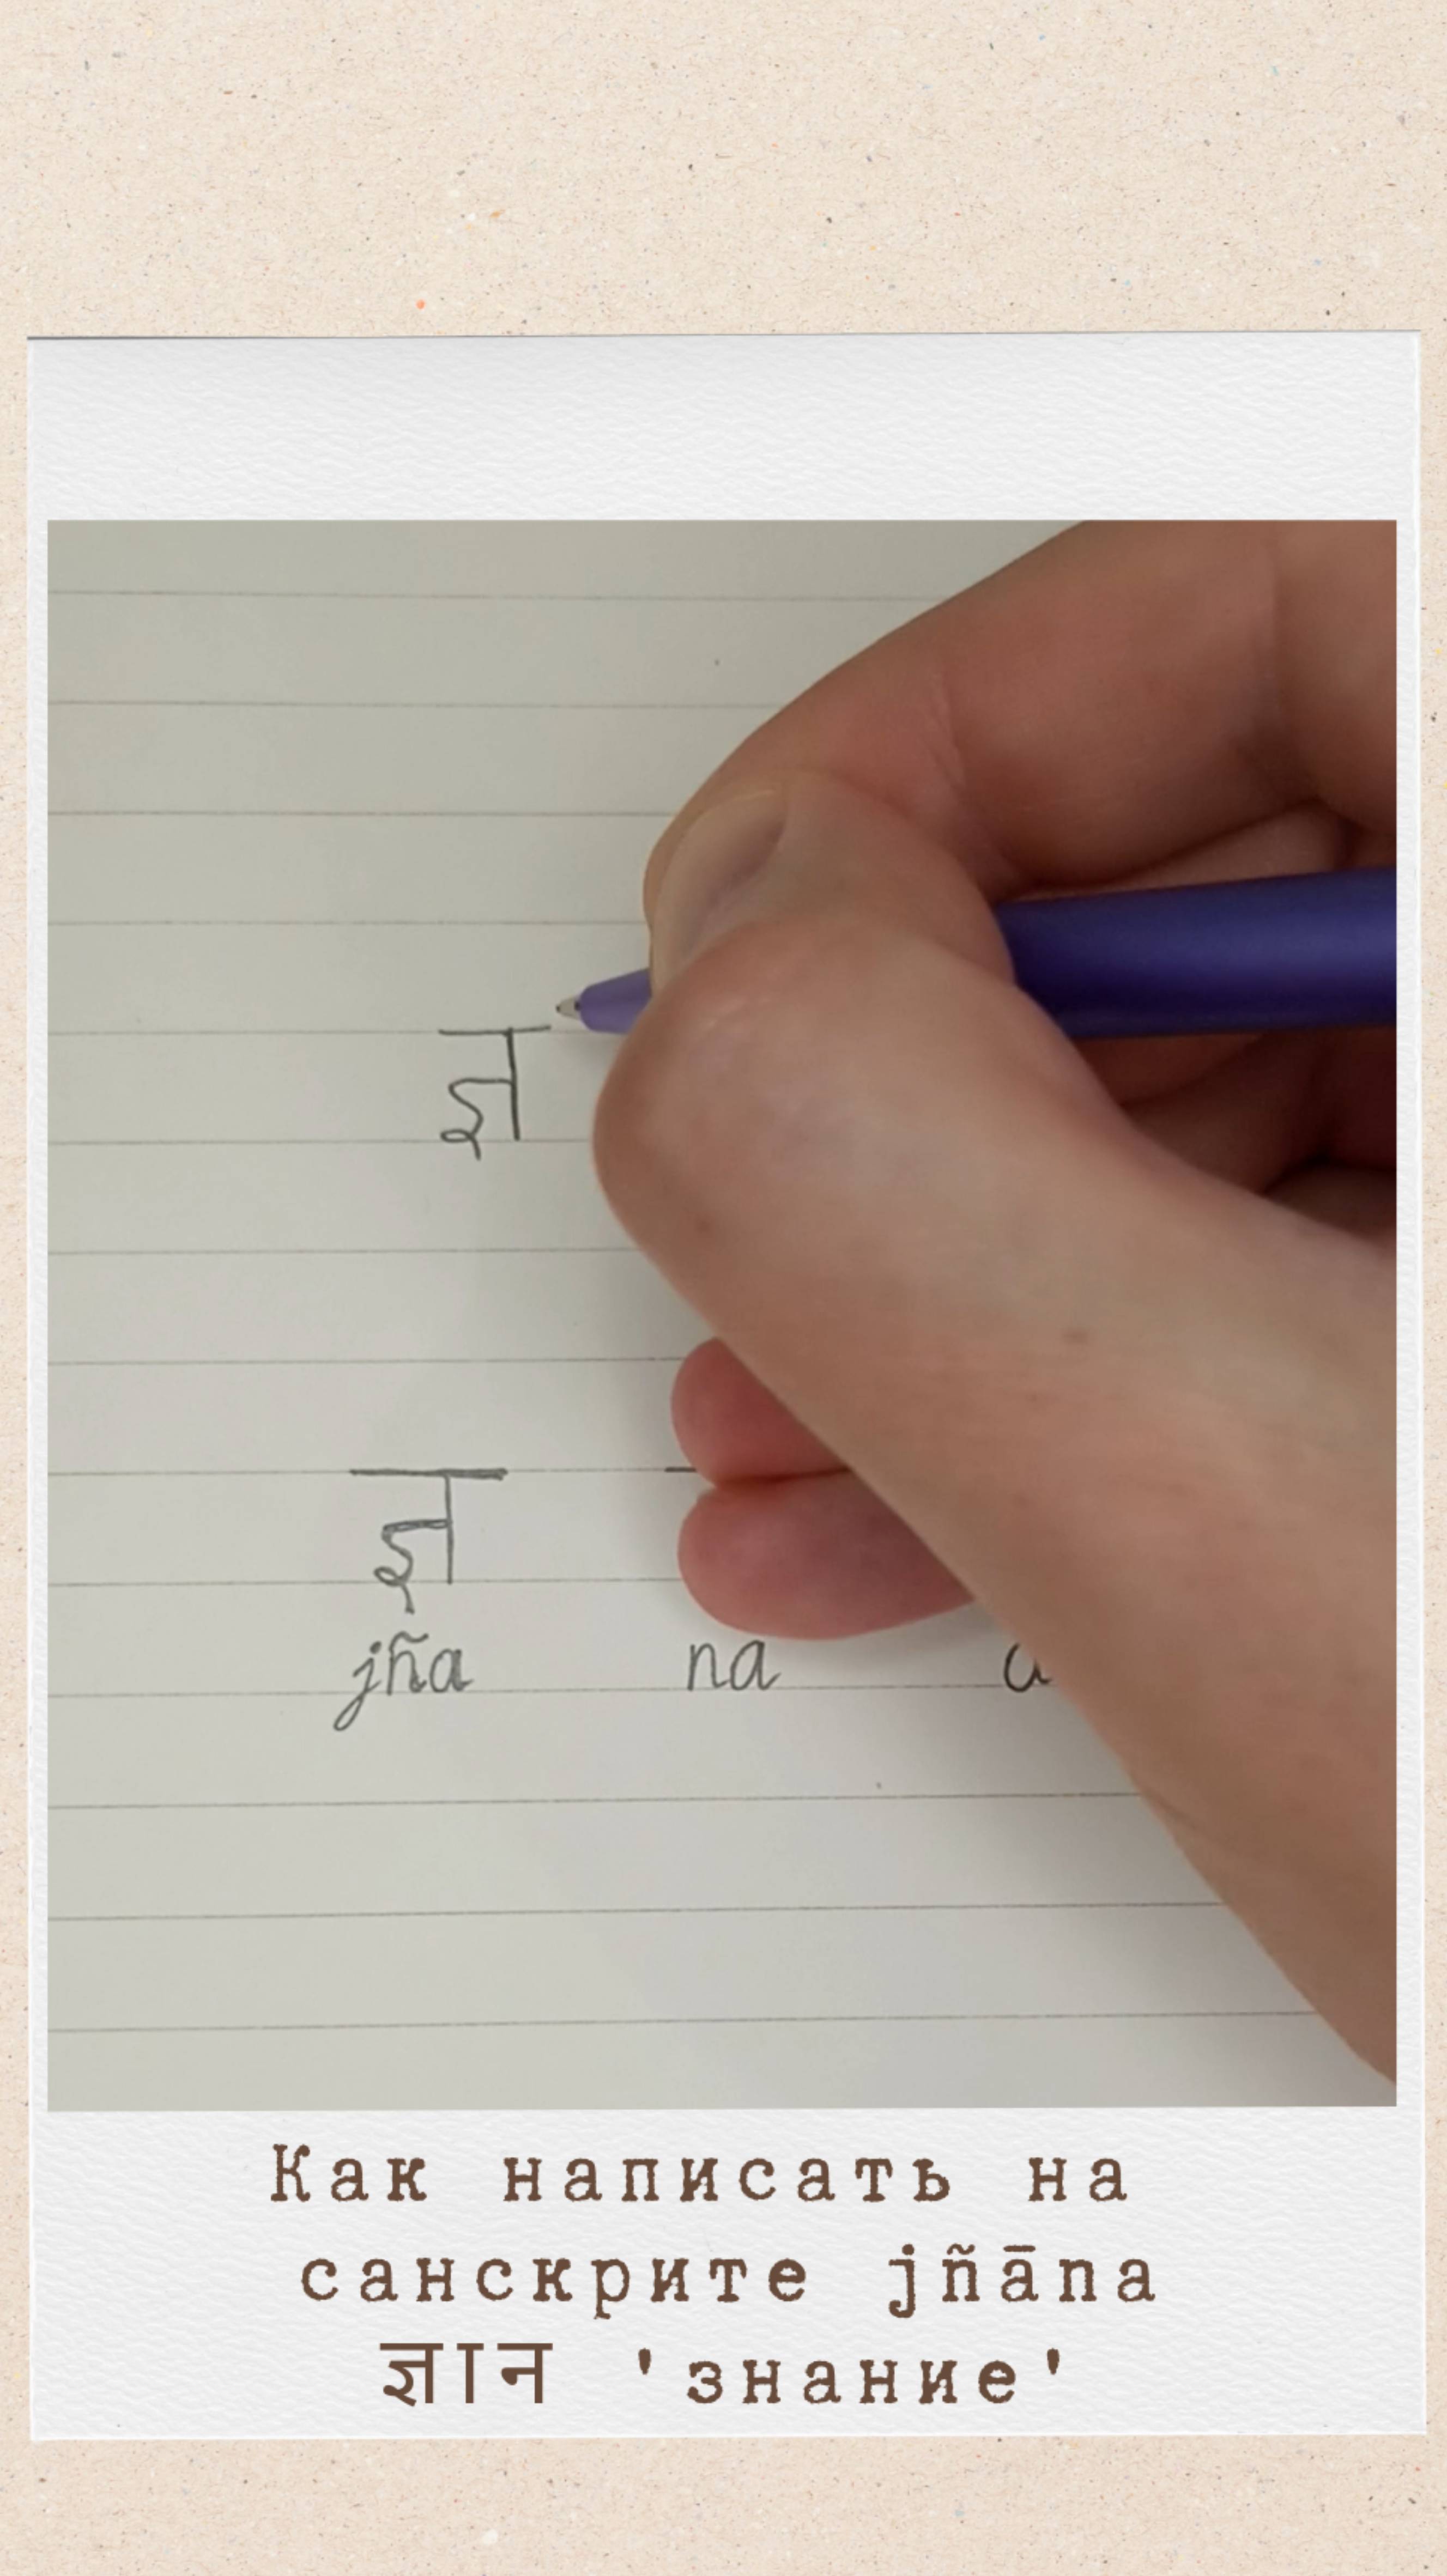 ज्ञ
ज्ञ
jña na a
Как написать на
санскрите jñāna
ज्ञान 'знание'